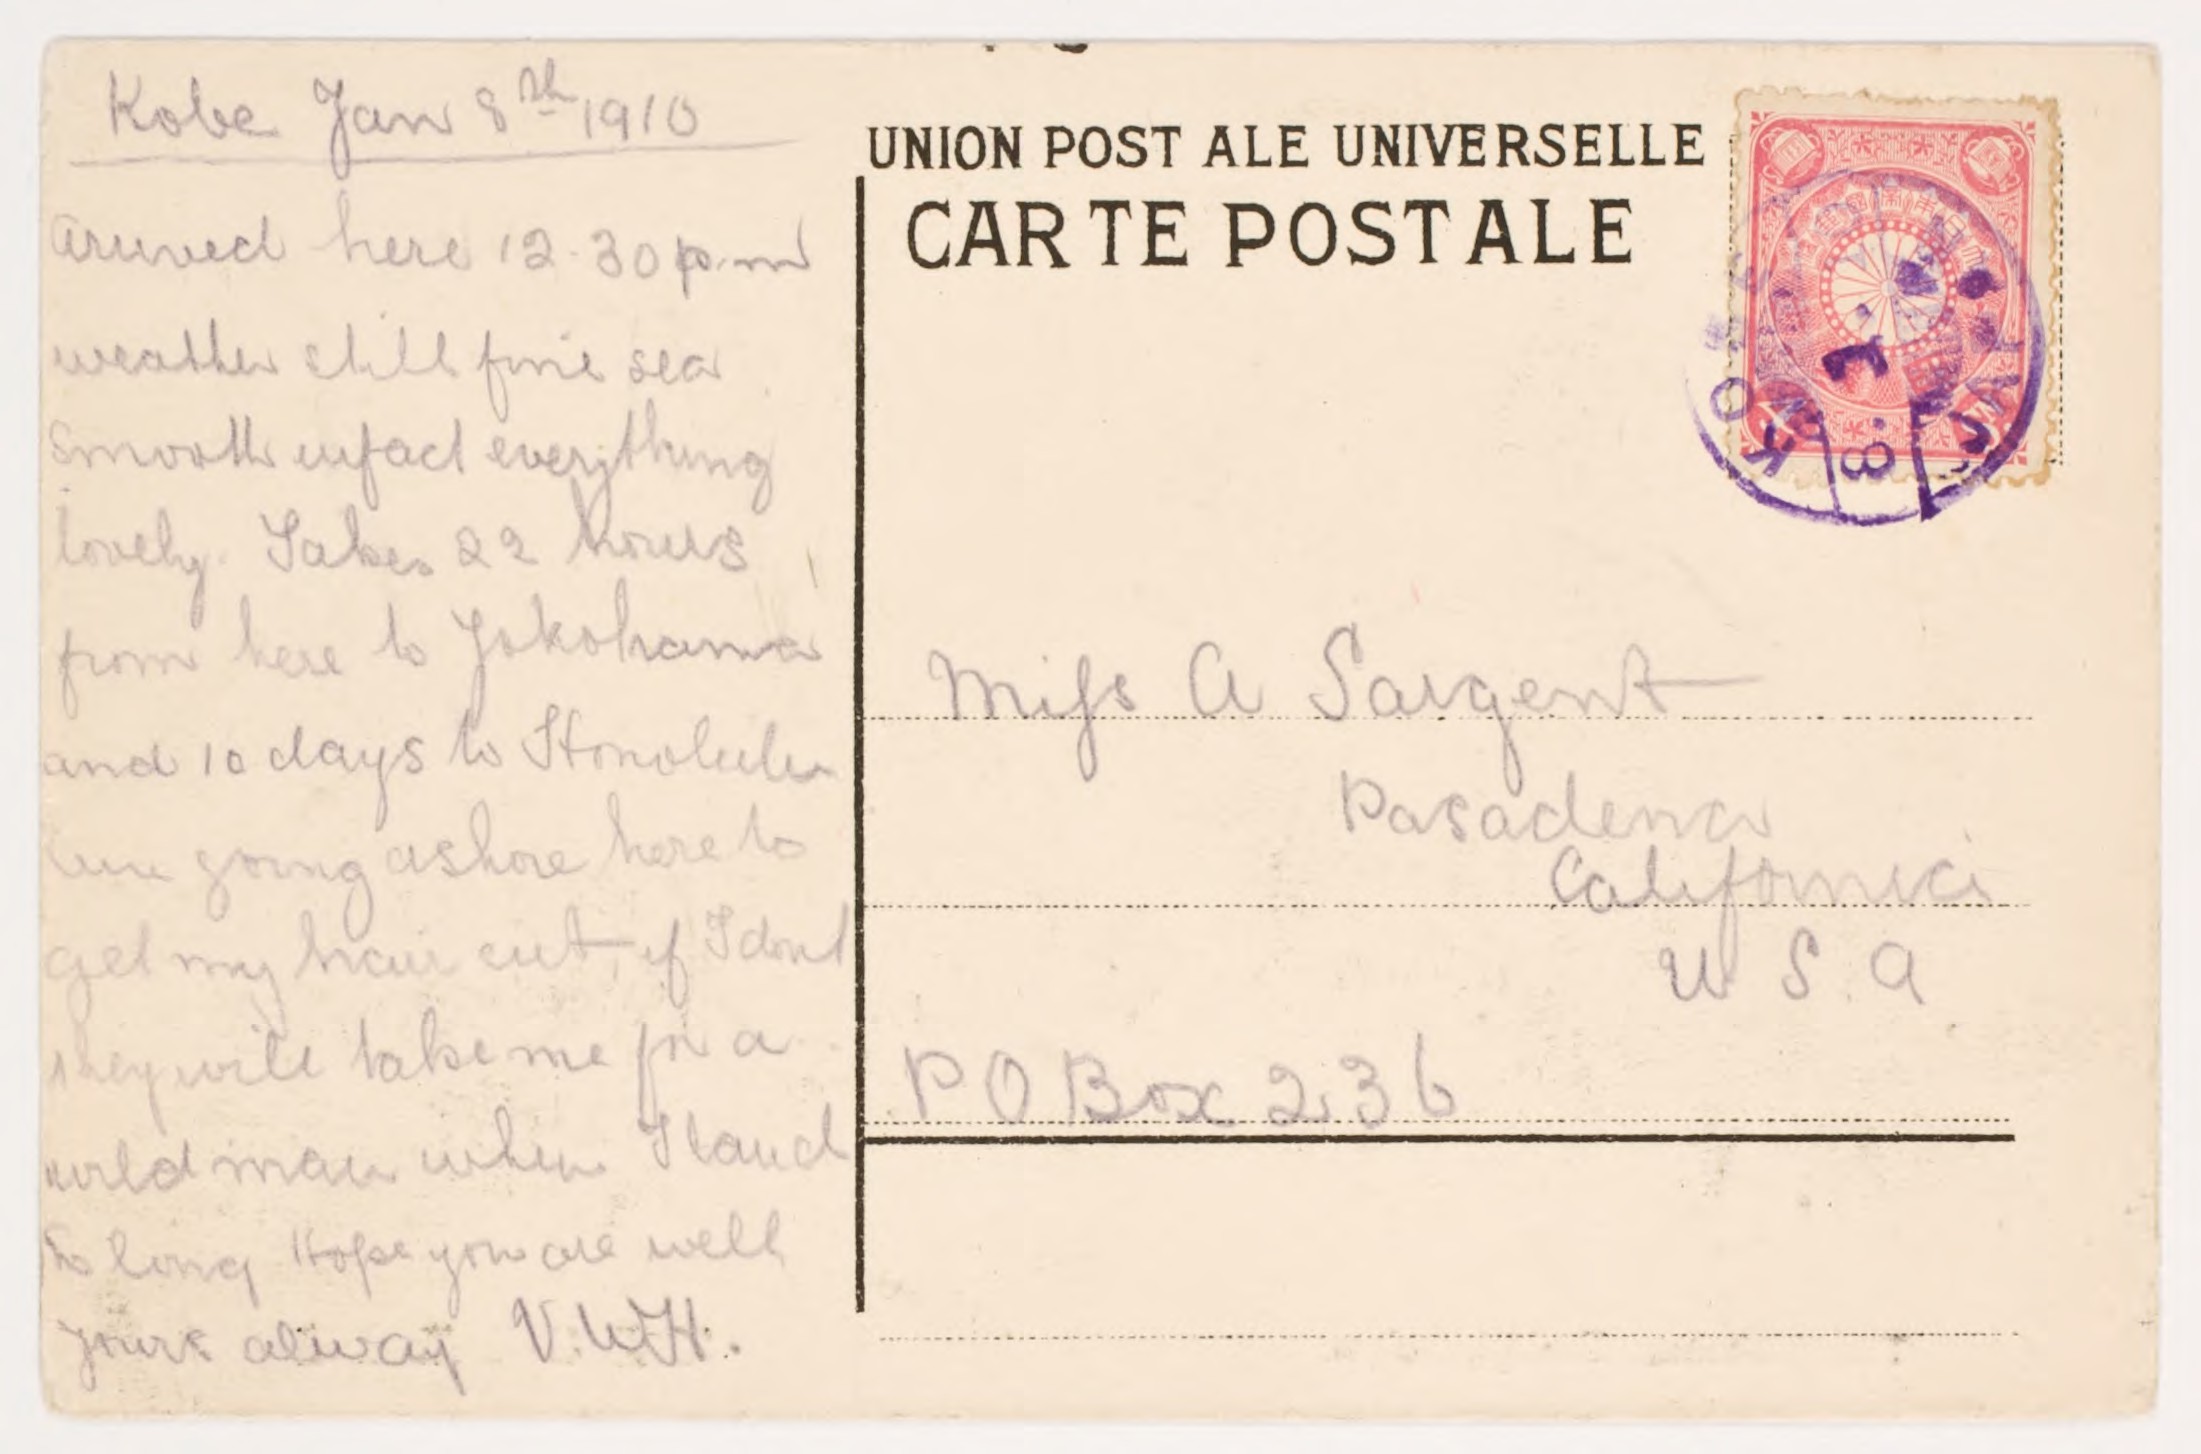 Kobe Jan 8th 1910
Arrived here 12.30 p.m
weather still fine sea
smooth infact everything
lovely. Takes 22 hours
from here to Yokohama
and 10 days to Honolulu
am going ashore here to
get my hair cut, if I dont
they will take me for a
wild man when I land
So long Hope you are well
yours alway V.W.H.
UNION POSTALE UNIVERSELLE
CARTE POSTALE
Miss A Sargent
Pasadena
California
U S A
P O Box 236
KOBE
8.1
JAPAN